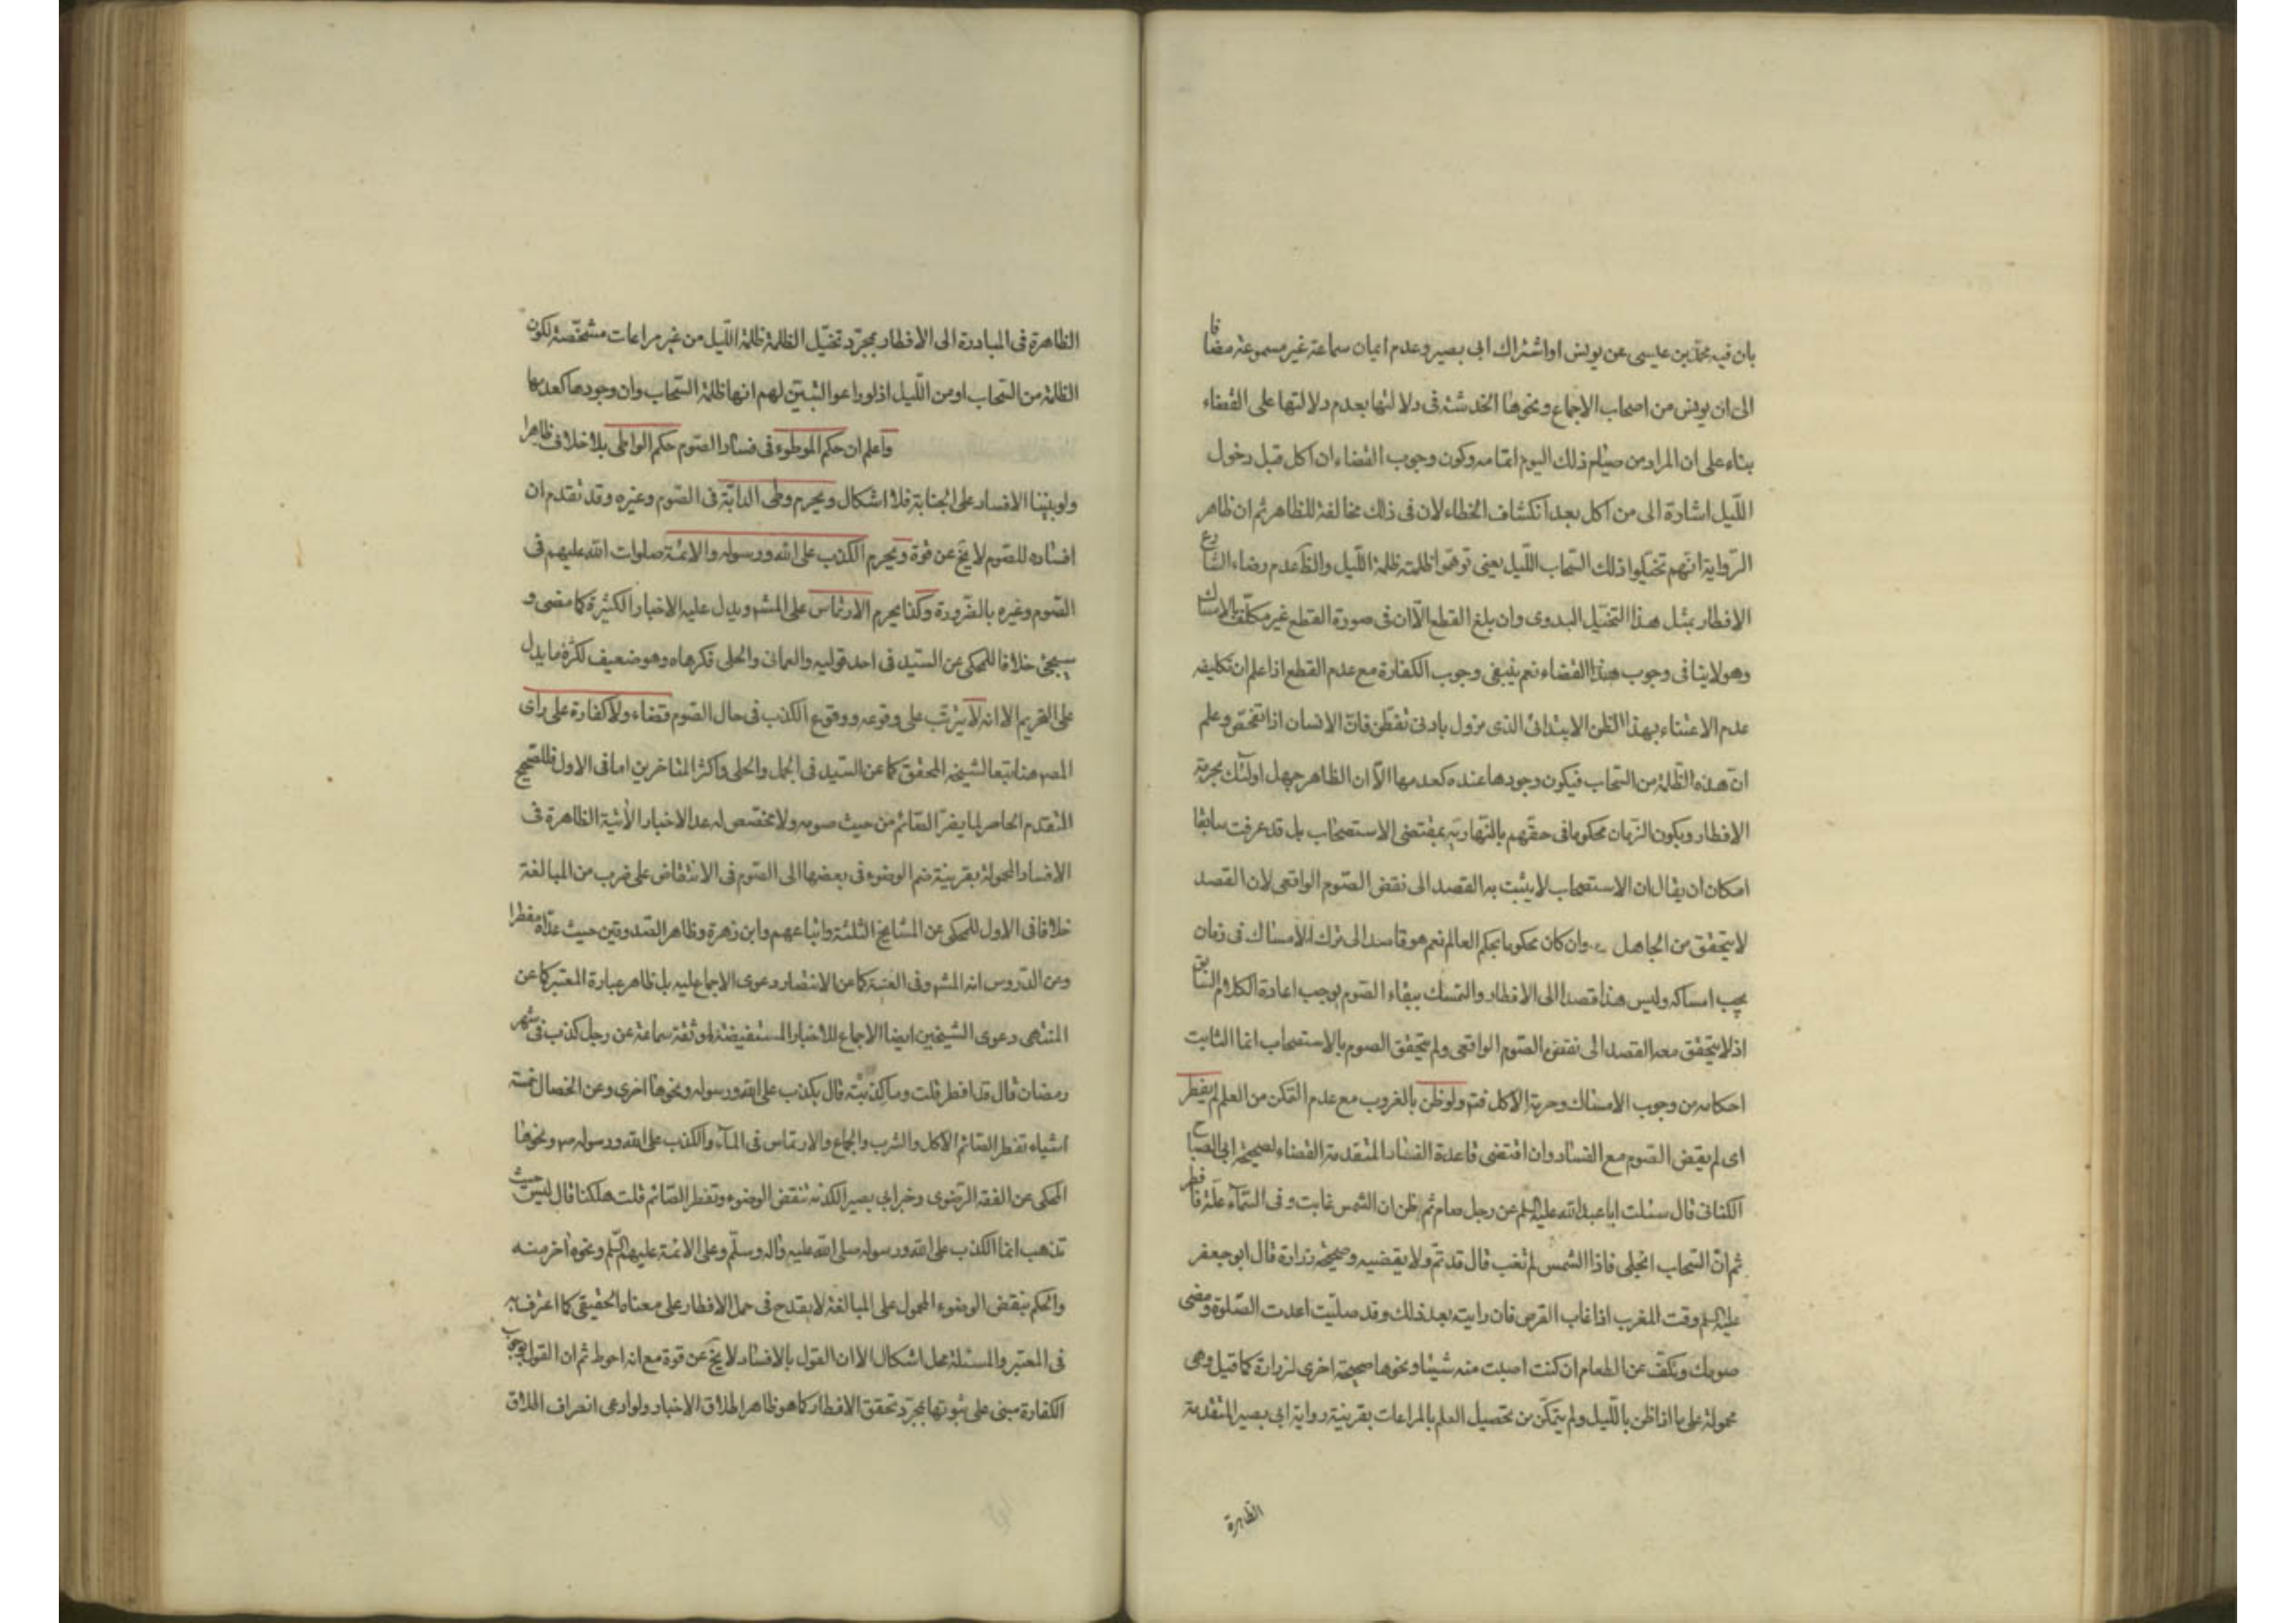 بان فيه محمد بن عيسى عن يونس او اشتراك ابى بصير وعدم ايمان سماعة غير مسموعة مضافا
الى ان يونس من اصحاب الاجماع ونحوها الخدشة فى دلالتها بعدم دلالتها على القضاء
بناء على ان المراد من صيام ذلك اليوم اتمامه وكون وجوب القضاء ان اكل قبل دخول
اللّيل اشارة الى من اكل بعد انكشاف الخطاء لان فى ذلك مخالفة للظاهر ثم ان ظاهر
الرّواية انّهم تخيّلوا ذلك السّحاب اللّيل يعنى توهّموا ظلمته ظلمة اللّيل والظ عدم رضاء الشارع
الافطار بمثل هذا التخيّل البدوى وان بلغ القطع الّا ان فى صورة القطع غير مكلّف بالامساك
وهو لا ينافى وجوب هذا القضاء نعم ينبغى وجوب الكفارة مع عدم القطع اذا علم ان تكليفه
عدم الاعتناء بهذا الظن الابتدائى الذى يزول بادنى تفطّن فانّ الانسان اذا تفحّص وعلم
انّ هذه الظّلمة من السّحاب فيكون وجودها عنده كعدمها الّا ان الظاهر جهل اولئك بحرمة
الافطار ويكون الزّمان محكوما فى حقّهم بالنّهاريّة بمقتضى الاستصحاب بل قد عرفت سابقا
امكان ان يقال ان الاستصحاب لا يثبت به القصد الى نقض الصّوم الواقعى لان القصد
لا يتحقق من الجاهل وان كان محكوما بحكم العالم نعم هو قاصد الى ترك الامساك فى زمان
يجب امساكه وليس هذا قصدا الى الافطار والتمسك ببقاء الصّوم يوجب اعادة الكلام السابق
اذ لا يتحقق معه القصد الى نقض الصّوم الواقعى ولم يتحقق الصوم بالاستصحاب انما الثابت
احكامه من وجوب الامساك وحرمة الاكل فتم ولو ظن بالغروب مع عدم التمكن من العلم لم يفطر
اى لم يقض الصّوم مع الفساد وان اقتضى قاعدة الفساد المتقدمة القضاء لصحيحة ابى الصباح
الكنانى قال سئلت ابا عبد الله عليه السلم عن رجل صام ثم ظن ان الشمس غابت وفى السّمآء علّة فافطر
ثم انّ السّحاب انجلى فاذا الشمس لم تغب قال قد تمّ ولا يقضيه وصحيحة زرارة قال ابو جعفر
عليه السلم وقت المغرب اذا غاب القرص فان رايته بعد ذلك وقد صليّت اعدت الصّلوة ومضى
صومك وتكفّ عن الطعام ان كنت اصبت منه شيئا ونحوها صحيحة اخرى لزرارة كما قيل وهى
محمولة على ما اذا ظن باللّيل ولم يتمكّن من تحصيل العلم بالمراعات بقرينة رواية ابى بصير المتقدمة
الظاهرة
الظاهرة فى المبادرة الى الافطار بمجرّد تخيّل الظلمة ظلمة اللّيل من غير مراعات مشخّصة لكون
الظلمة من السّحاب او من اللّيل اذ لو راعوا لتبيّن لهم انها ظلمة السّحاب وان وجودها كعدمها
واعلم ان حكم الموطوء فى فساد الصّوم حكم الواطى بلا خلاف ظاهرا
ولو بنينا الافساد على الجنابة فلا اشكال ويحرم وطى الدابّة فى الصّوم وغيره وقد تقدم ان
افساده للصّوم لا يخ عن قوة ويحرم الكذب على الله ورسوله والائمة صلوات الله عليهم فى
الصّوم وغيره بالضّرورة وكذا يحرم الارتماس على المشهور ويدل عليه الاخبار الكثيرة كما مضى و
سيجئ خلافا للمحكى عن السّيد فى احد قوليه والعمانى والحلى فكرهاه وهو ضعيف لكثرة ما يدل
على التحريم الا انه لا يترتّب على وقوعه ووقوع الكذب فى حال الصّوم قضاء ولا كفارة على راى
المصـ هنا تبعا لشيخه المحقق كما عن السّيد فى الجمل والحلى واكثر المتاخرين اما فى الاول فللصحيح
المتقدم الحاصر لما يضرّ الصّائم من حيث صومه ولا مخصّص له عدا الاخبار الأتية الظاهرة فى
الافساد المحمولة بقرينة ضم الوضوء فى بعضها الى الصّوم فى الانتقاض على ضرب من المبالغة
خلافا فى الاول للمحكى عن المشايخ الثلثة واتباعهم وابن زهرة وظاهر الصّدوقين حيث عدّاه مفطرا
وعن الدّروس انه المشهور وفى الغنية كما عن الانتصار دعوى الاجماع عليه بل ظاهر عبارة المعتبر كما عن
المنتهى دعوى الشيخين ايضا الاجماع للاخبار المستفيضة لموثقة سماعة عن رجل كذب فى شهر
رمضان قال قد افطر قلت وما كذبته قال يكذب على الله ورسوله ونحوها اخرى وعن الخصال خمسة
اشياء تفطر الصّائم الاكل والشرب والجماع والارتماس فى المآء والكذب على الله ورسوله ص ونحوها
المحكى عن الفقه الرّضوى وخبر ابى بصير الكذبة تنقض الوضوء وتفطر الصّائم قلت هلكنا قال ليس حيث
تذهب انما الكذب على الله ورسوله صلى الله عليه وآله وسلّم وعلى الائمة عليهم السّلم ونحوه اخر منه
والحكم بنقض الوضوء المحمول على المبالغة لا يقدح فى حمل الافطار على معناه الحقيقى كما اعترف به
فى المعتبر والمسئلة محل اشكال الا ان القول بالافساد لا يخ عن قوة مع انه احوط ثم ان القول بوجوب
الكفارة مبنى على ثبوتها بمجرّد تحقق الافطار كما هو ظاهر اطلاق الاخبار ولو ادعى انصراف اطلاق